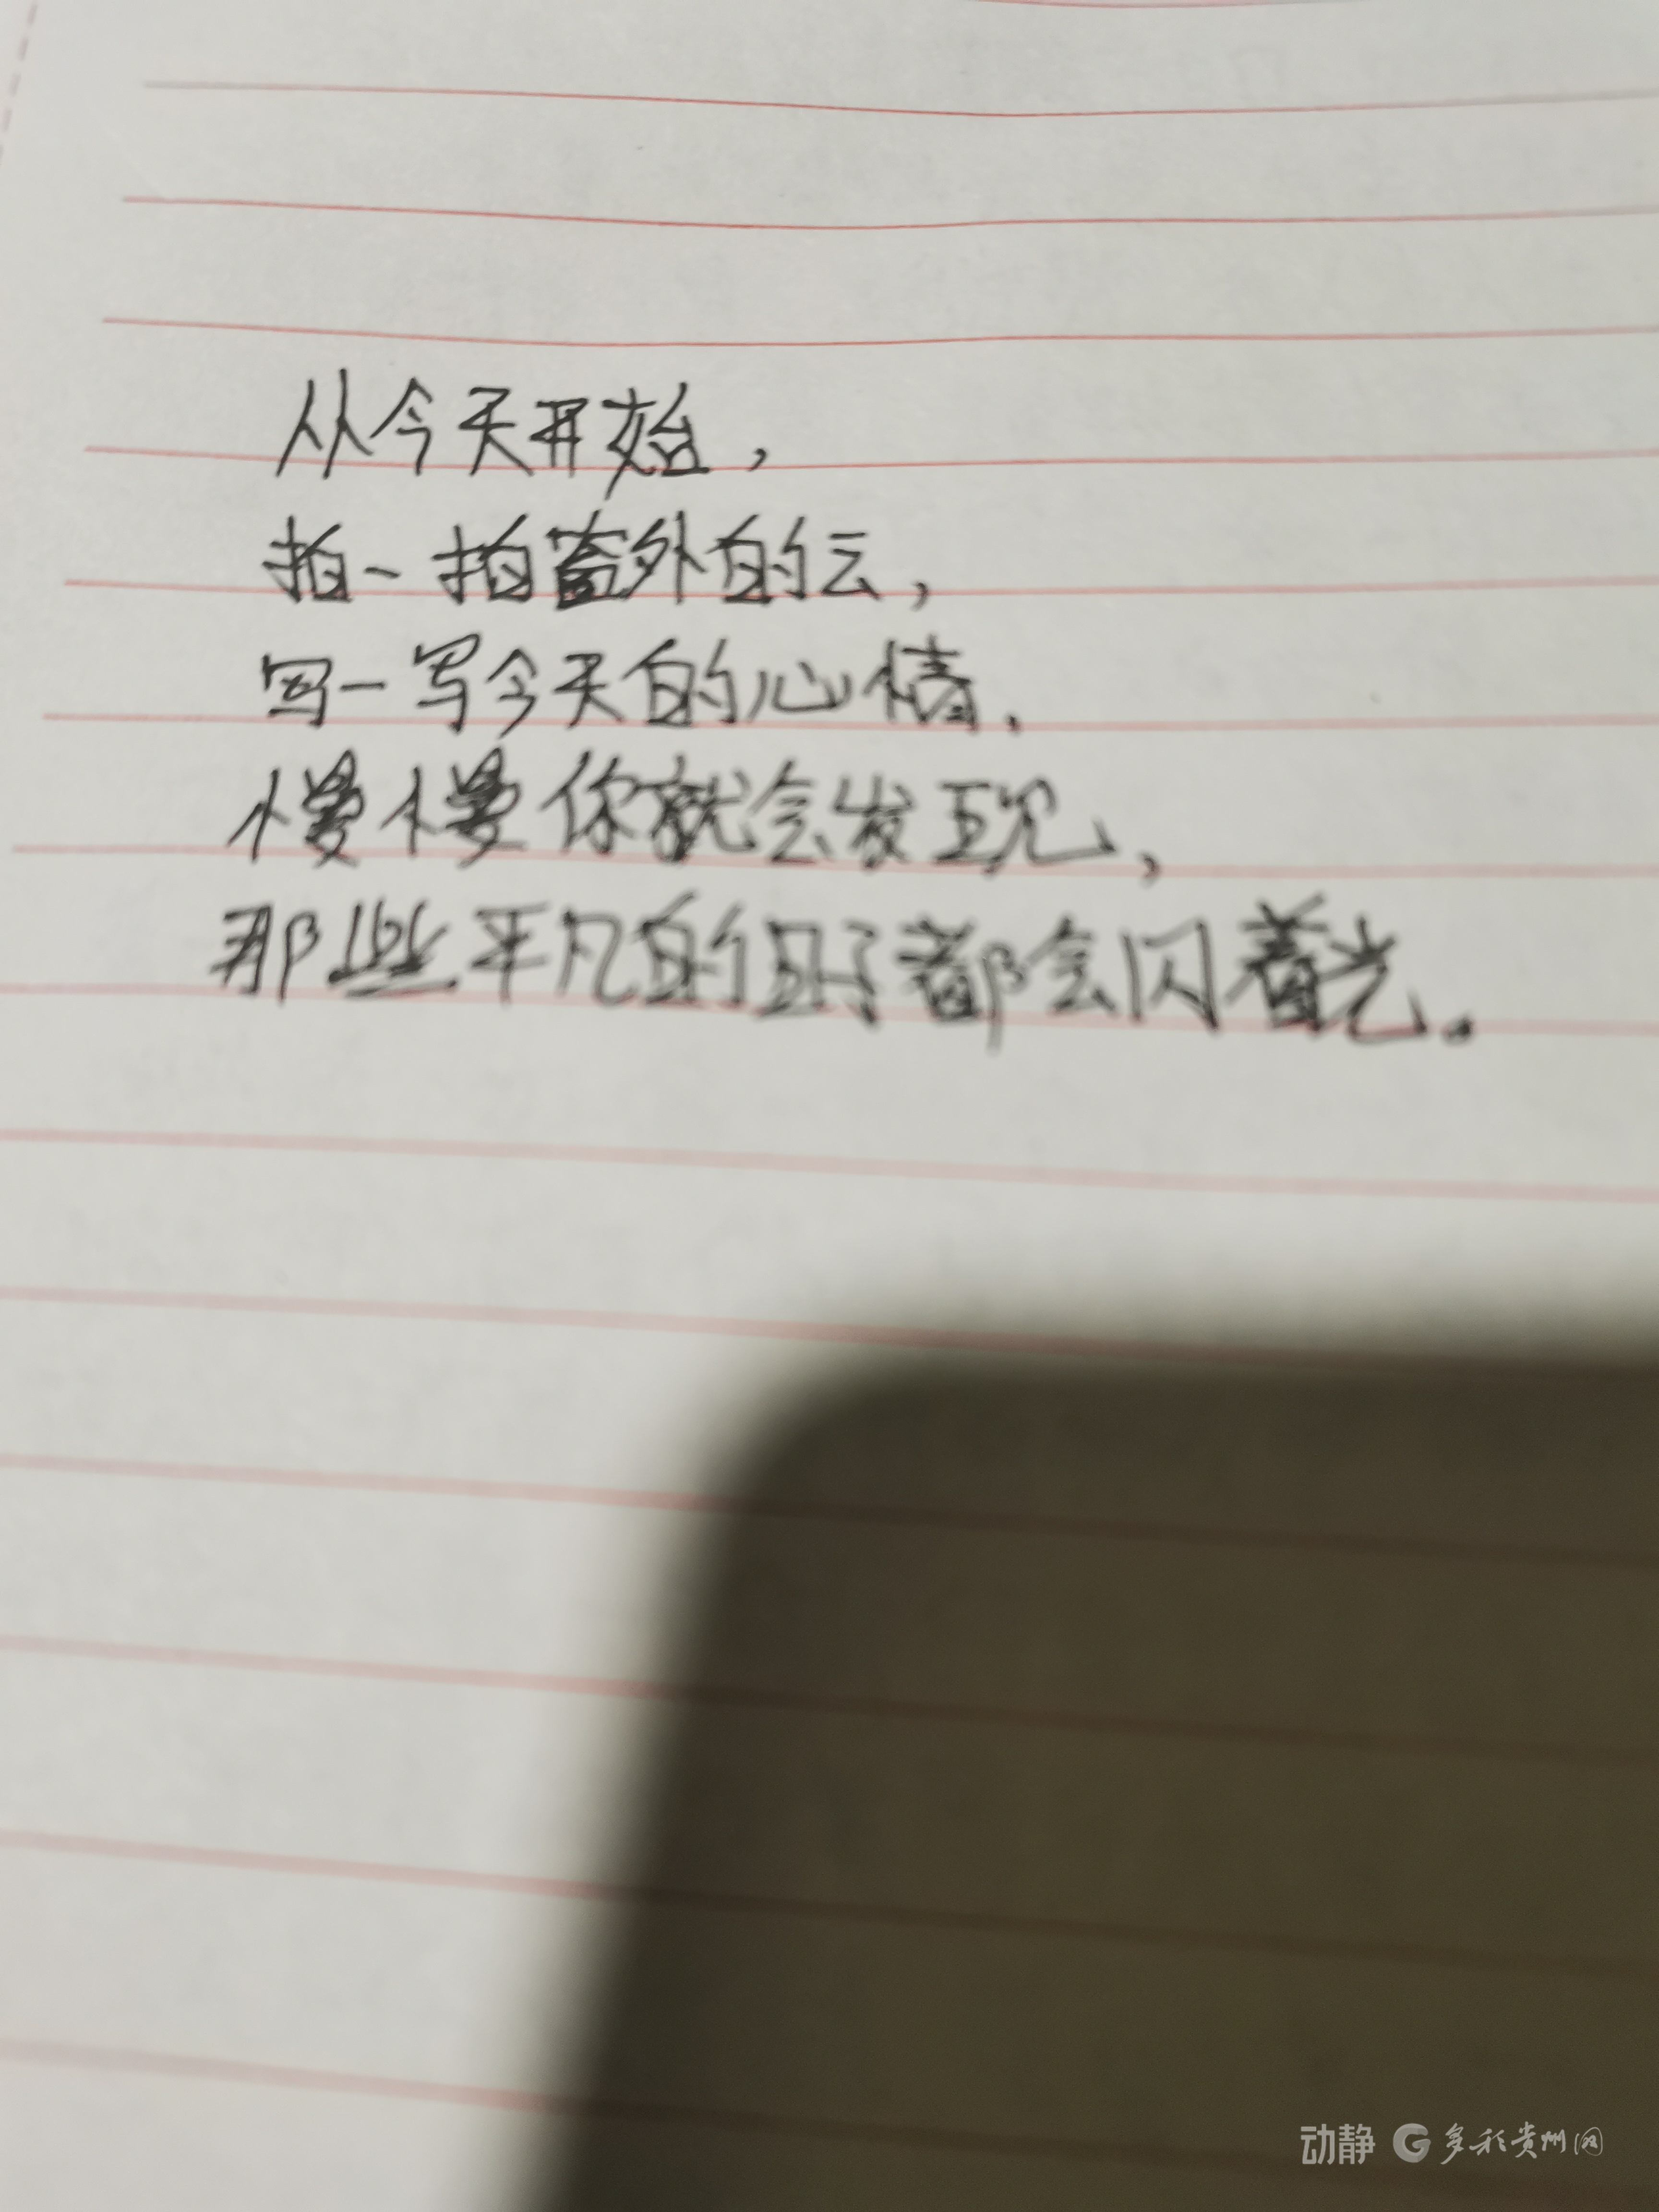 从今天开始，
拍一拍窗外的云，
写一写今天的心情.
慢慢你就会发现，
那些平凡的日子都会闪着光。
动静 多彩贵州网